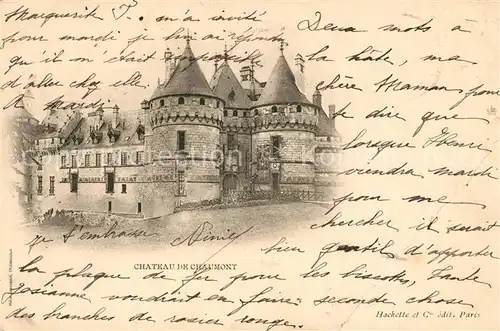 Marguerite P. m'a invité
pour mardi je lui ai répondu
qu'il en était
d'aller chez elle
A mardi
Je t'embrasse Ninie
Deux mots à
la hâte, ma
chère Maman pour
te dire que
lorsque Henri
viendra mardi
pour me
chercher il serait
bien gentil d'apporter
la plaque de fer pour les biscottes, Tante
Josianne voudrait en faire: seconde chose
des branches de rosier rouge.
CHATEAU DE CHAUMONT
Hachette et Cie édit. Paris